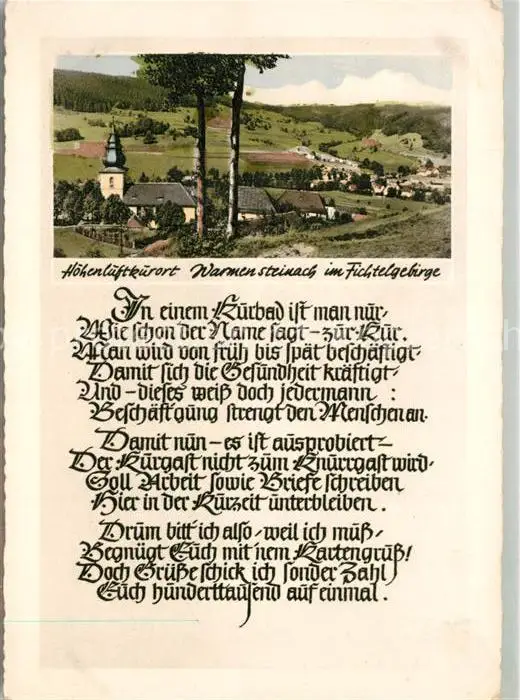 Höhenluftkurort Warmensteinach im Fichtelgebirge
In einem Kurbad ist man nur,
Wie schon der Name sagt – zur Kur.
Man wird von früh bis spät beschäftigt,
Damit sich die Gesundheit kräftigt,
Und – dieses weiß doch jedermann :
Beschäftgung strengt den Menschen an.
Damit nun – es ist ausprobiert –
Der Kurgast nicht zum Knurrgast wird,
Soll Arbeit sowie Briefe schreiben
Hier in der Kurzeit unterbleiben.
Drum bitt ich also, weil ich muß,
Begnügt Euch mit 'nem Kartengruß!
Doch Grüße schick ich sonder Zahl,
Euch hunderttausend auf einmal.